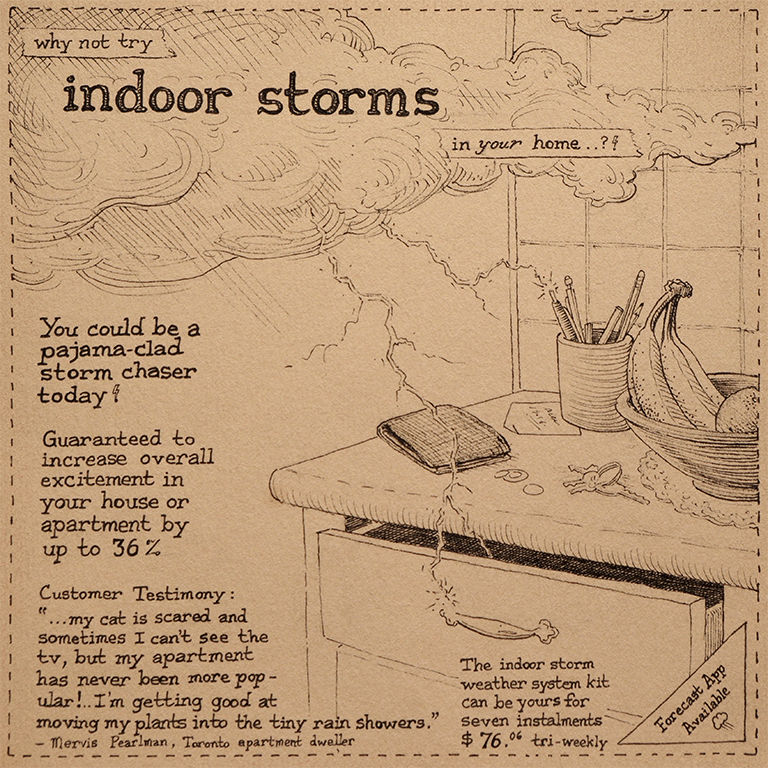 why not try
indoor storms
in your home..?!
You could be a
pajama-clad
storm chaser
today!
Guaranteed to
increase overall
excitement in
your house or
apartment by
up to 36%
Customer Testimony:
"...my cat is scared and
sometimes I can't see the
tv, but my apartment
has never been more pop-
ular!..I'm getting good at
moving my plants into the tiny rain showers."
- Mervis Pearlman, Toronto apartment dweller
The indoor storm
weather system kit
can be yours for
seven instalments
$76.06 tri-weekly
Forecast App
Available